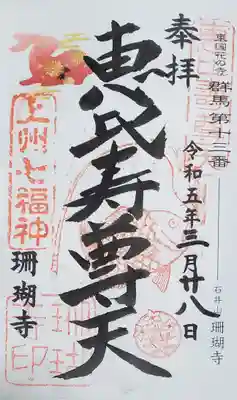 東国花の寺
群馬 第十三番
石井山 珊瑚寺
奉拝
令和五年三月廿八日
恵比寿尊天
上州七福神
珊瑚寺